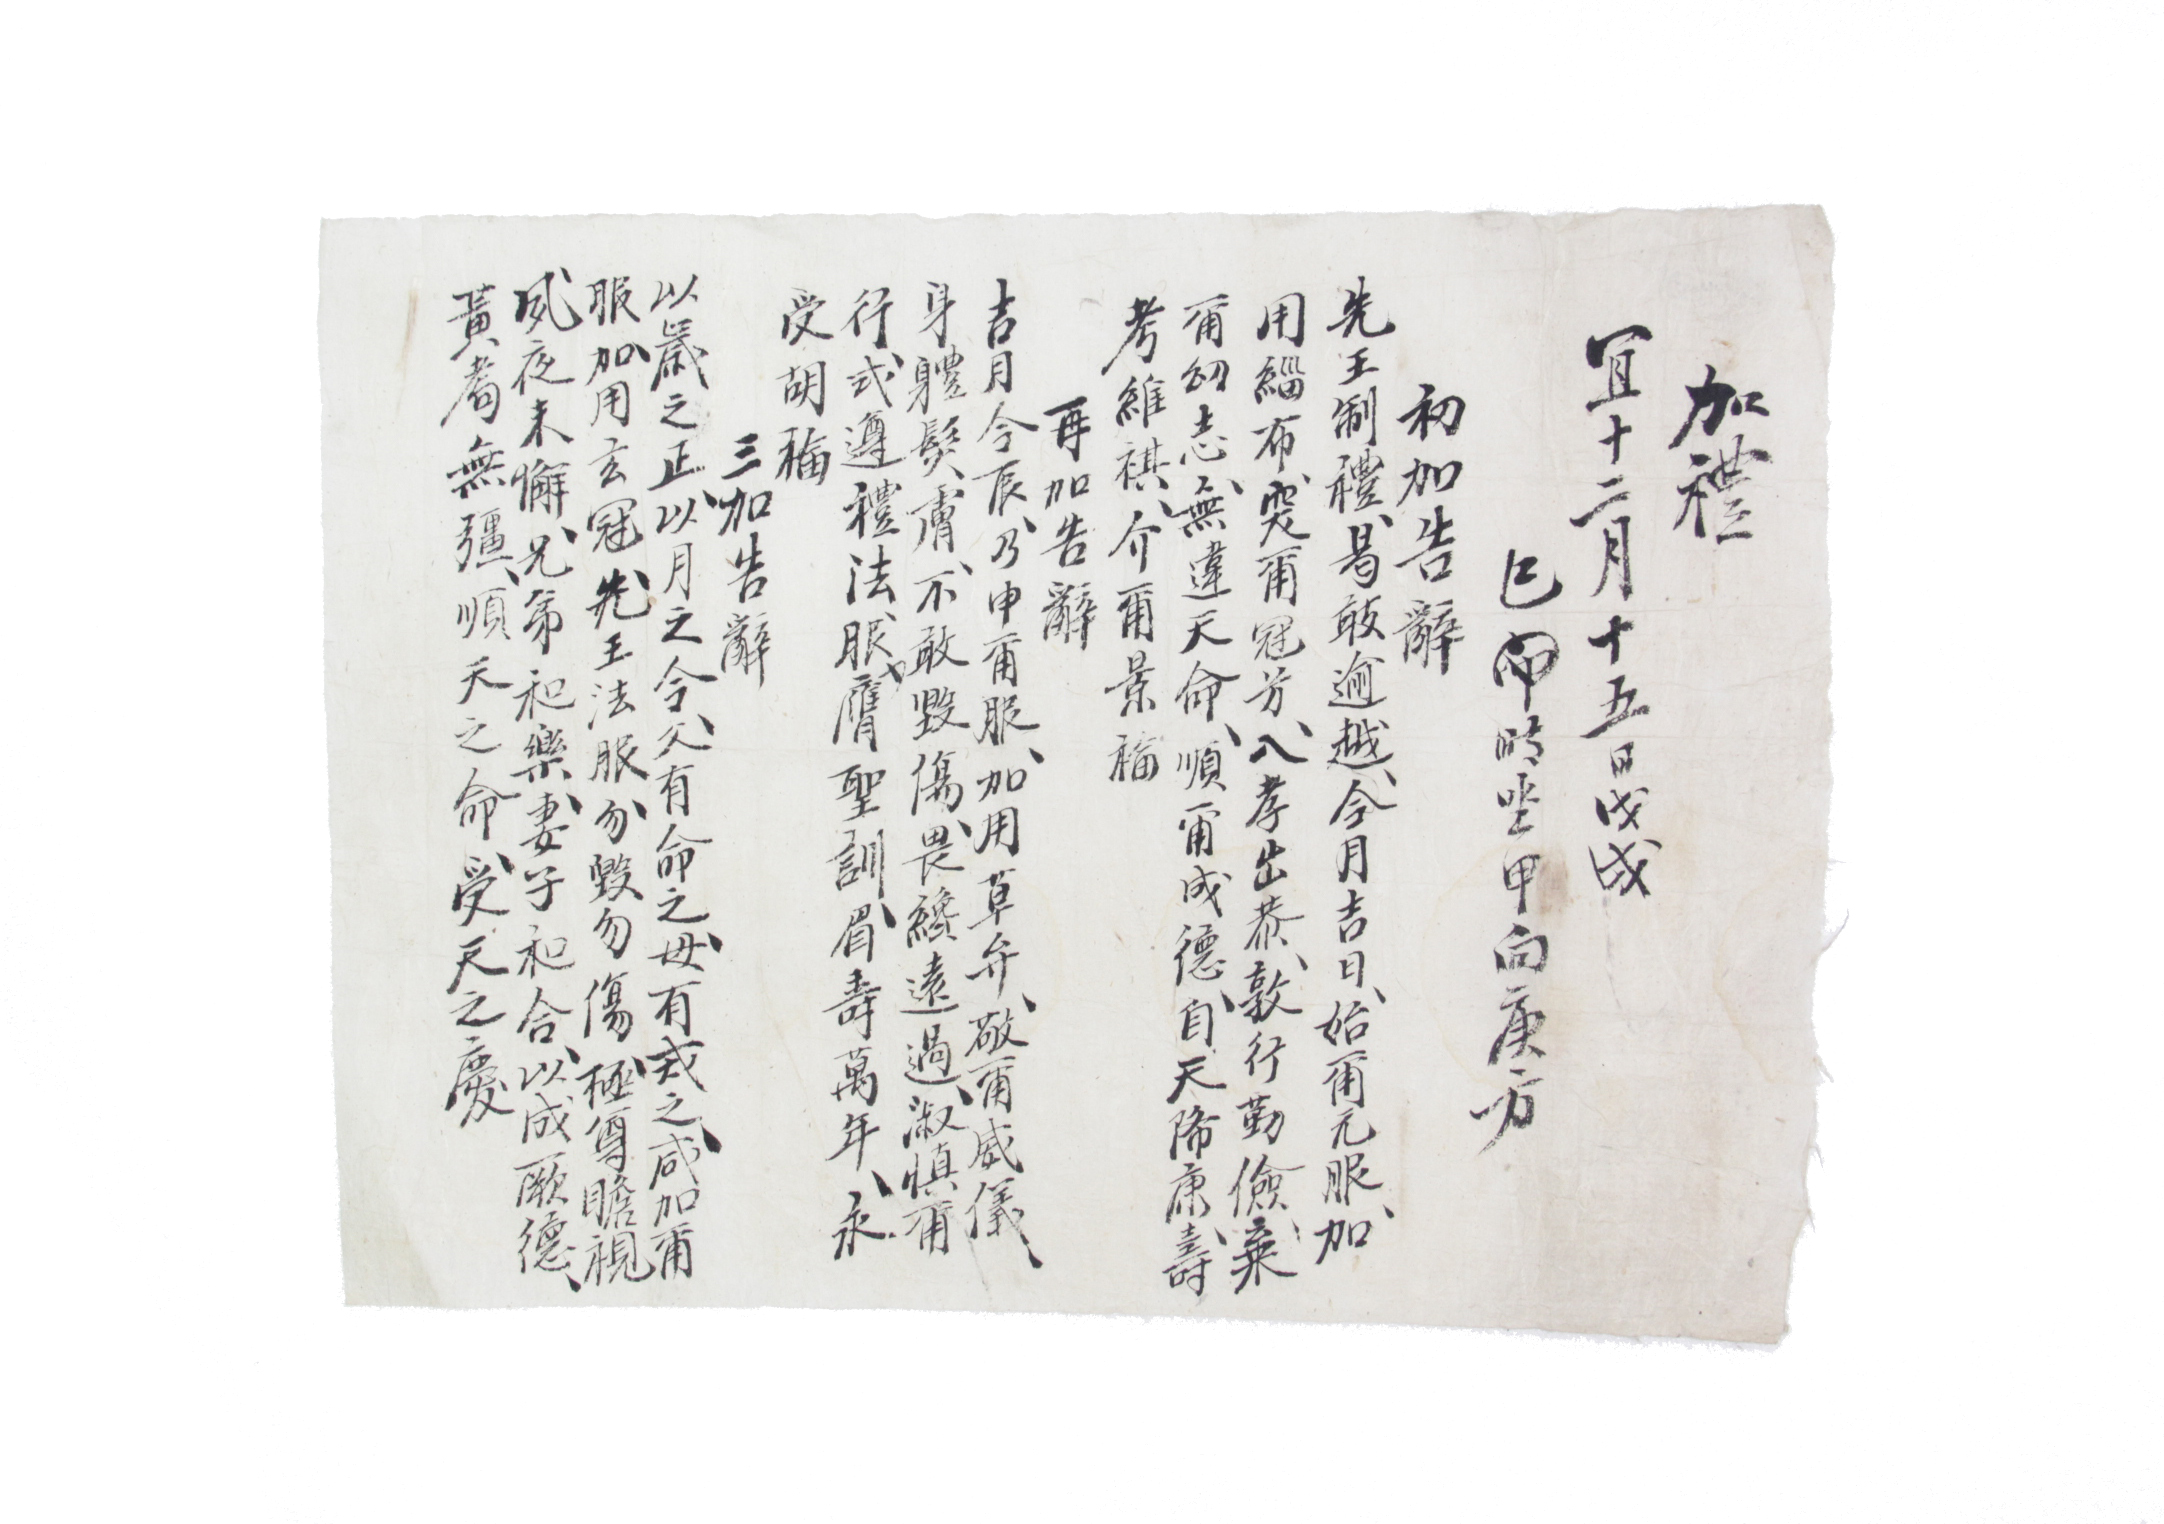 加禮
宜十二月十五日戊戌
巳卯時坐甲向庚方
初加告辭
先王制禮、曷敢逾越、今月吉日、始爾元服、加
用緇布、突爾冠芳、入孝出恭、敦行勤儉、棄
爾幼志、無違天命、順爾成德、自天降康、壽
考維祺、介爾景福
再加告辭
吉月令辰、乃申爾服、加用草弁、敬爾威儀、
身軆髮膚、不敢毀傷、畏纔遠過、淑愼爾
行、式遵禮法服、膺聖訓、眉壽萬年、永
受胡福
三加告辭
以歲之正、以月之令、父有命之、母有戎之、咸加爾
服、加用玄冠、先王法服、勿毀勿傷、極尊瞻視
夙夜未懈、兄弟和樂、妻子和合、以成厥德、
黃耇無彊、順天之命、受天之慶